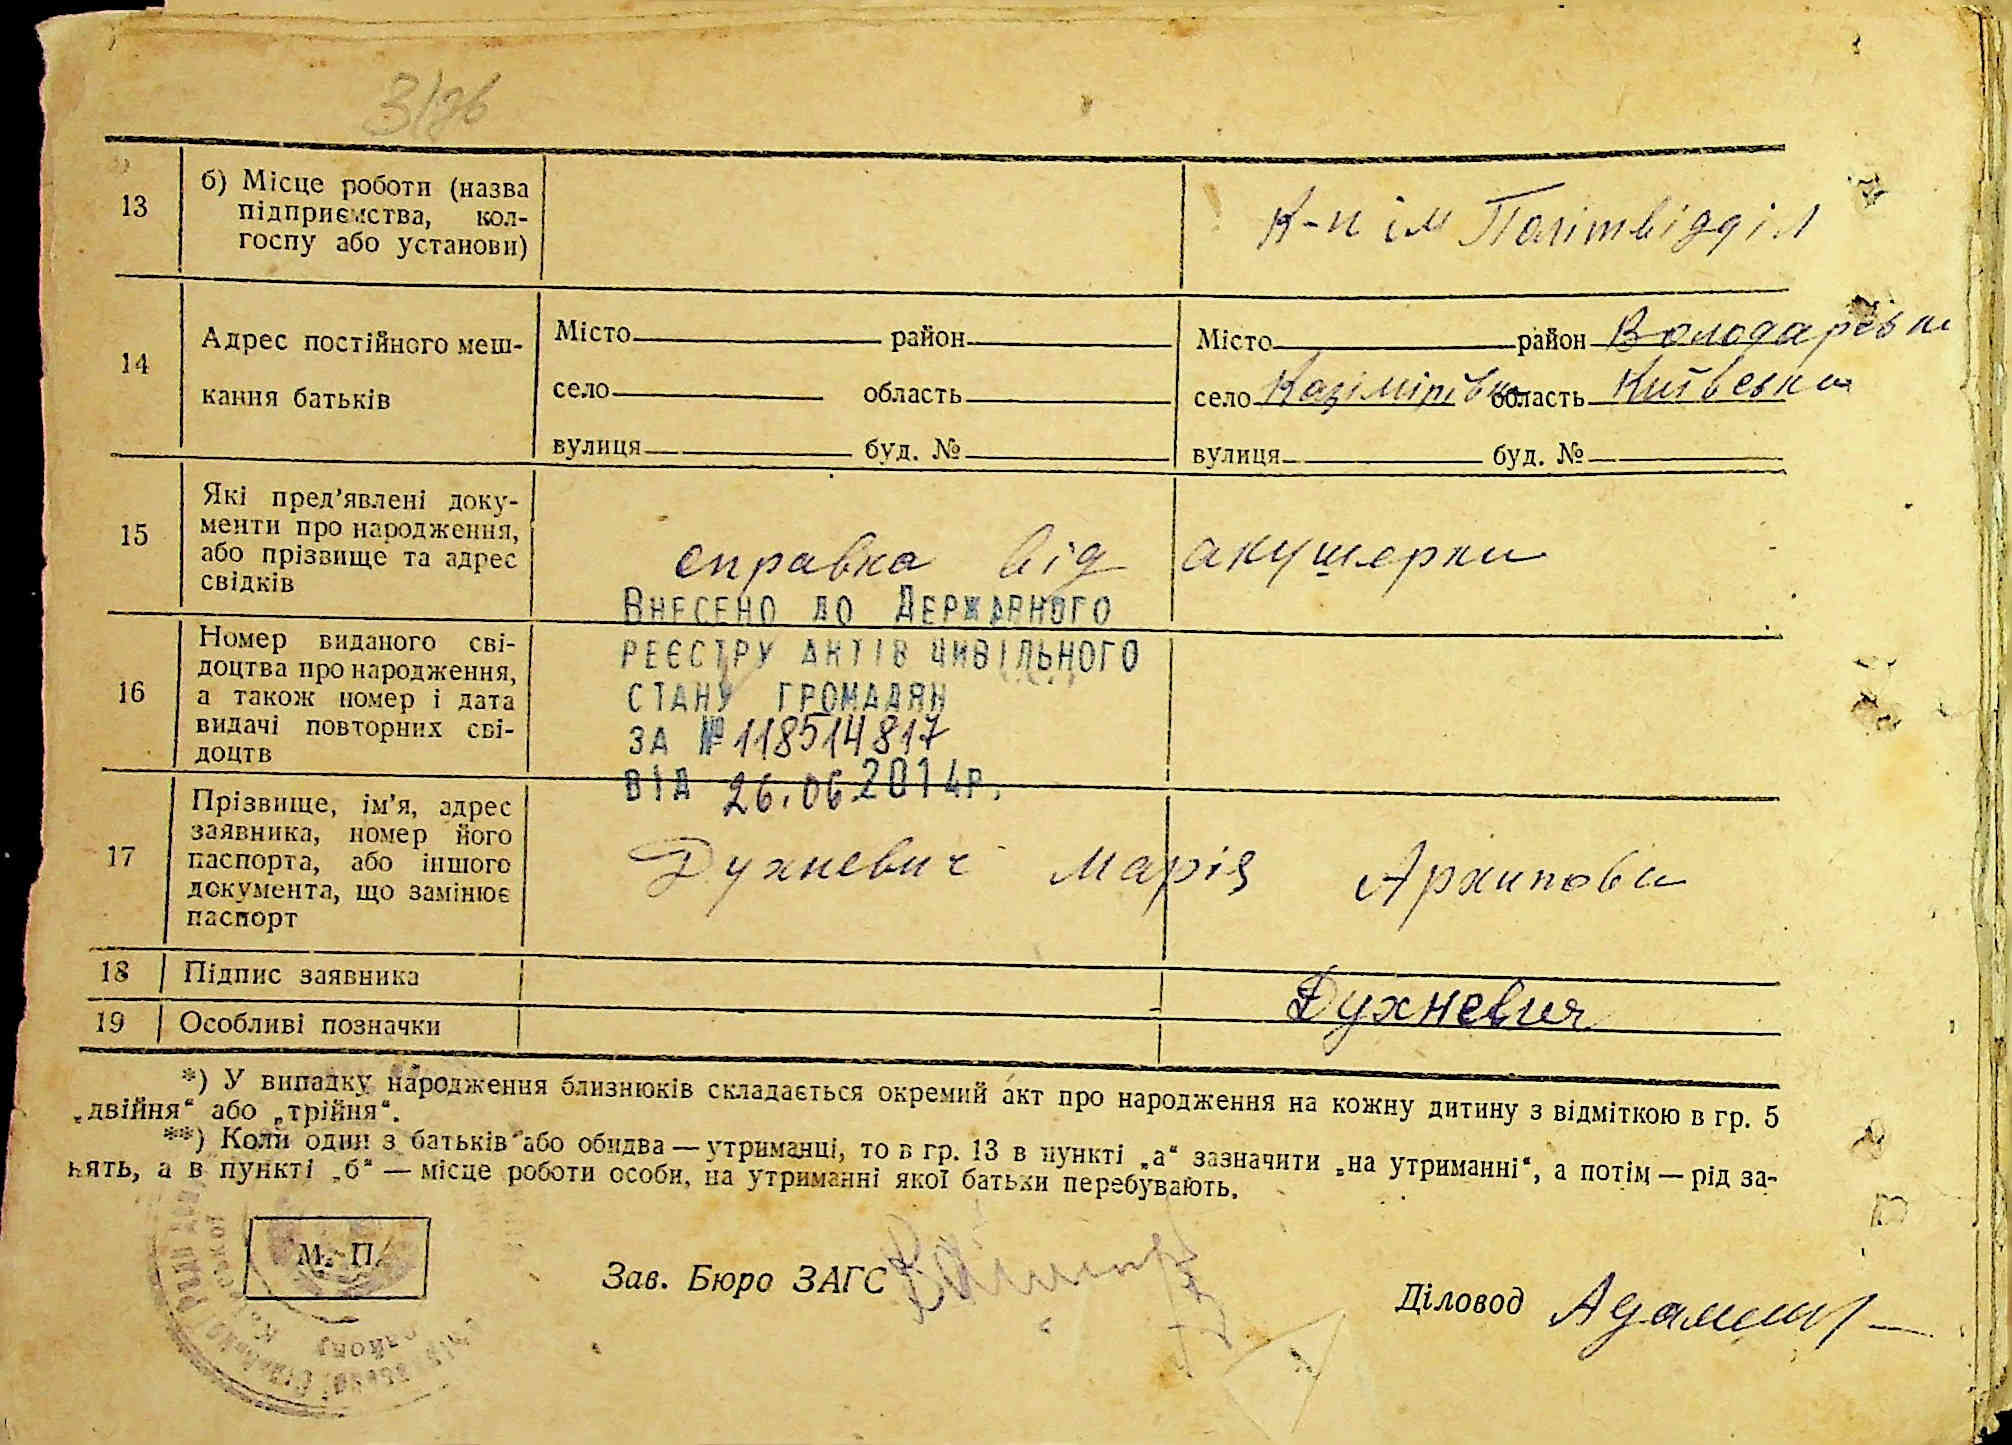 13
б) Місце роботи (назва
підприємства, кол-
госпу або установи)
К-п ім Політвідділ
14
Адрес постійного меш-
кання батьків
Місто район
село область
вулиця буд. №
Місто район Володарськ
село Казімірівка область Київська
вулиця буд. №
15
Які пред'явлені доку-
менти про народження,
або прізвище та адрес
свідків
справка від акушерки
16
Номер виданого сві-
доцтва про народження,
а також номер і дата
видачі повторних сві-
доцтв
Внесено до Державного
реєстру актів цивільного
стану громадян
за № 118514817
від 26.06.2014р.
17
Прізвище, ім'я, адрес
заявника, номер його
паспорта, або іншого
документа, що замінює
паспорт
Духневич Марія Архипова
18
Підпис заявника
Духневич
19
Особливі позначки
*) У випадку народження близнюків складається окремий акт про народження на кожну дитину з відміткою в гр. 5
„двійня“ або „трійня“.
**) Коли один з батьків або обидва — утриманці, то в гр. 13 в пункті „а“ зазначити „на утриманні“, а потім — рід за-
нять, а в пункті „б“ — місце роботи особи, на утриманні якої батьки перебувають.
М. П.
Зав. Бюро ЗАГС
Діловод